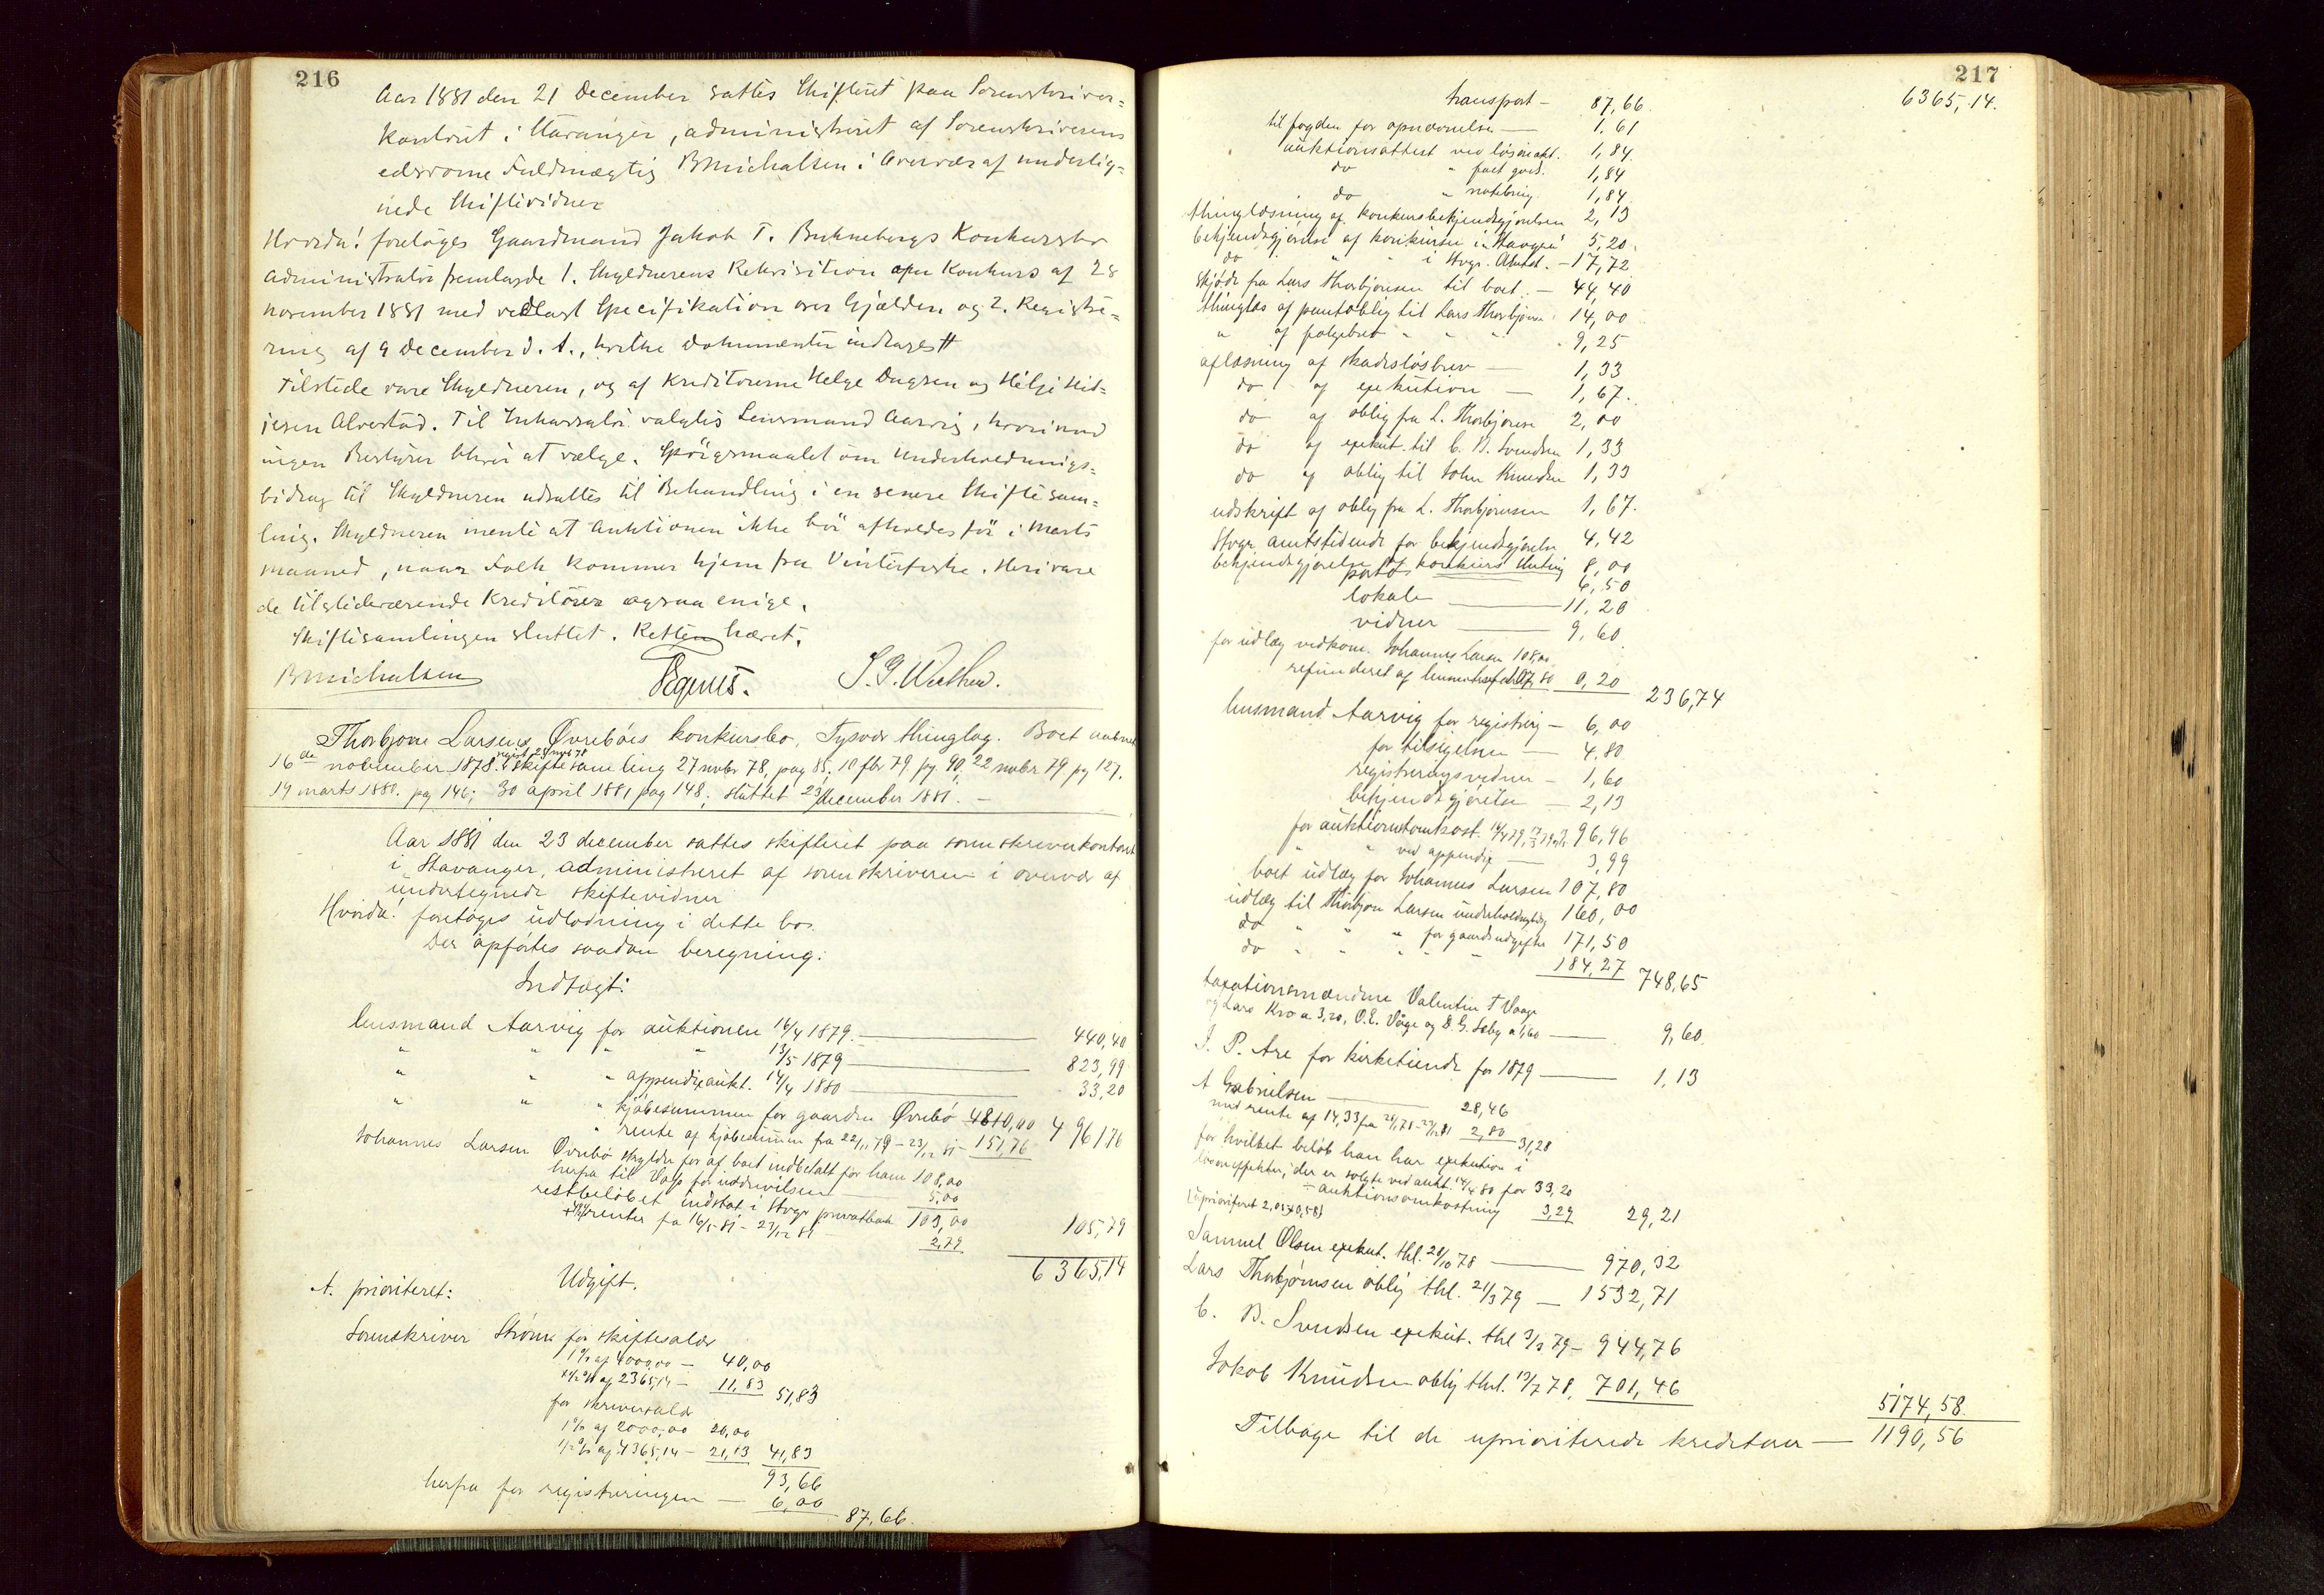 216
Aar 1881 den 21 December sattes Skifteret paa Sorenskriver=
kontoret i Stavanger, administreret af Sorenskriverens
edsvorne Fuldmægtig B Michalsen i Overvær af underteg=
nede Skiftevidner
Hvorda! foretoges Gaardmand Jakob T. Buknebergs Konkursbo
Administrator fremlagde 1. Skyldnerens Rekvisition om Konkurs af 28
November 1881 med vedlagt Specifikation over Gjælden og 2. Registre=
ring af 9 December d. A., hvilke Dokumenter indtages #
Tilstede vare Skyldneren, og af Kreditorerne Helge Dagsen og Helge Hid=
jesen Alvestad. Til Inkassator valgtes Lensmand Aarvig, hvorimod
ingen Bestyrer blev at vælge. Spörgsmaalet om Underholdnings=
bidrag til Skyldneren udsattes til Behandling i en senere Skiftesam=
ling. Skyldneren mente at Auktionen ikke bör afholdes för i Marts
Maaned, naar Folk kommer hjem fra Vinterfiske. Heri vare
de tilstedeværende Kreditorer ogsaa enige.
Skiftesamlingen sluttet. Retten hævet.
B Michalsen
J. G. Wathne.
Thorbjørn Larsens Øvrebøes konkursbo, Tysvær thinglag. Boet aabnet
16de november 1878. regist. 25 novb 78 Skiftesamling 27 novbr 78, pag 85; 10 fbr 79 pg. 90, 22 novbr 79 pg 127,
19 marts 1880. pag 146; 30 april 1881 pag 148; sluttet 23 december 1881. -
Aar 1881 den 23 december sattes skifteret paa sorenskriverkontoret
i Stavanger, administreret af sorenskriveren i overvær af
undertegnede skiftevidner
Hvorda! foretoges udlodning i dette bo.
Der opførtes saadan beregning:
Indtægt:
lensmand Aarvig for auktionen 16/4 1879. 440,40
" " " " 13/5 1879 823,99
" " " appendixaukt. 14/4 1880 33,20
" " " kjøbesummen for gaarden Øvrebø 4810,00
rente af kjøbesummen fra 22/11 79 - 23/12 81 - 151,76 4961,76
Johannes Larsen Øvrebø skylder for af boet indbetalt for ham 108,00
herfra til Vass for inddrivelsen 5,00
restbeløbet indstat i Stvgr privatbank 103,00
+ renter fra 16/5 81 - 23/12 81 - 2,79 105,79
6365,14
Udgift.
A. prioriteret:
Sorenskriver Strøm for skiftesalær
1% af 4000,00 - 40,00
1/2% af 2365,14 - 11,83 51,83
for skriversalær
1% af 2000,00 20,00
1/2% af 4365,14 - 21,83 41,83
93,66
herfra for registreringen - 6,00
87,66.
217
transport - 87,66. 6365,14.
til fogden for opnævnelse - 1,61
auktionsattest ved løsøreakt. 1,84.
do " fast gods. 1,84
do " notering 1,84
thinglæsning af konkursbekjendtgjørelsen 2,13
bekjendtgjørelse af konkursen i Stavgr 5,20.
do " " i Stvgr. Amtst. - 17,72
skjøde fra Lars Thorbjørnsen til boet. - 44,40
thinglæs af pantoblig til Lars Thorbjørnsen 14,00
" af følgebrev " " " 9,25
aflæsning af skadesløsbrev - 1,33
do af exekution - 1,67.
do af oblig fra L. Thorbjørnsen 2,00
do af exekut. til C. B. Svendsen 1,33
do af oblig til John Knudsen 1,33
udskrift af oblig fra L. Thorbjørnsen 1,67.
Stvgr amtstidende for bekjendtgjørelse 4,42
bekjendtgjørelse af konkurs slutning 8,00
porto 6,50
lokale 11,20
vidner 9,60
for udlæg vedkom. Johannes Larsen 108,00
refunderet af lensmanden 107,80 0,20 236,74
lensmand Aarvig for registrering - 6,00
for tilsigelser - 4,80
registreringsvidner - 1,60
bekjendtgjørelse - 2,13
for auktionsomkost. 96,96
" " ved appendix - 3,99
boet udlæg for Johannes Larsen 107,80
udlæg til Thorbjørn Larsen underholdning 160,00
do " " " for gaardsudgifter 171,50
do " " " " " 184,27 748,65
taxationsmændene Valentin T Vaage
og Lars Kroa 3,20, O. E. Våge og D. G. Soby a 1,60 - 9,60.
J. P. Are for kirketiende for 1879 - 1,13
A Gabrielsen 28,46
med rente af 14,33 fra 28/1 78 - 23/12 81 2,80 31,28
for hvilket beløb han har exekution i
løsøreeffekter, der er solgte ved aukt. 14/4 80 for 33,20
÷ auktionsomkostning 3,29 29,21
Samuel Olsen exekut. thl. 28/10 78 - 970,32
Lars Thorbjørnsen oblig thl. 21/3 79 - 1532,71
C. B. Svendsen exekut. thl 3/3 79 - 944,76
Jakob Knudsen oblig thl. 13/7 78, 701,46
5174,58.
Tilbage til de uprioriterede kreditorer - 1190,56